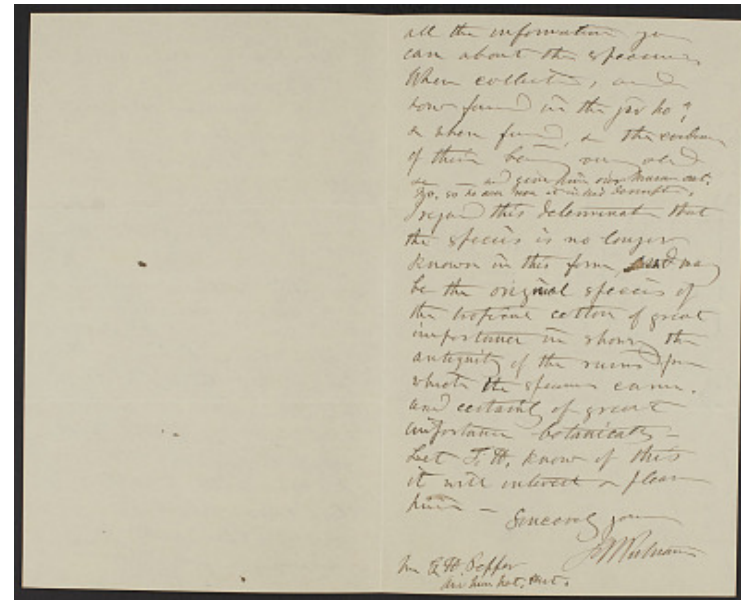 all the information you
can about the specimens
When collected, and
how found in the jar ho?
& where found, & the evidence
of their being very old
&c — and give him our Museum cat.
No. so he can use it in his description.
I regard this determination that
the species is no longer
known in this form, and may
be the original species of
the tropical cotton of great
importance in showing the
antiquity of the ruins from
which the specimens came.
and certainly of great
importance botanically —
Let F. H. know of this
it will interest & please
him —
Sincerely yours
F W Putnam
Mr G. H. Pepper
Am. Mus. Nat. Hist.